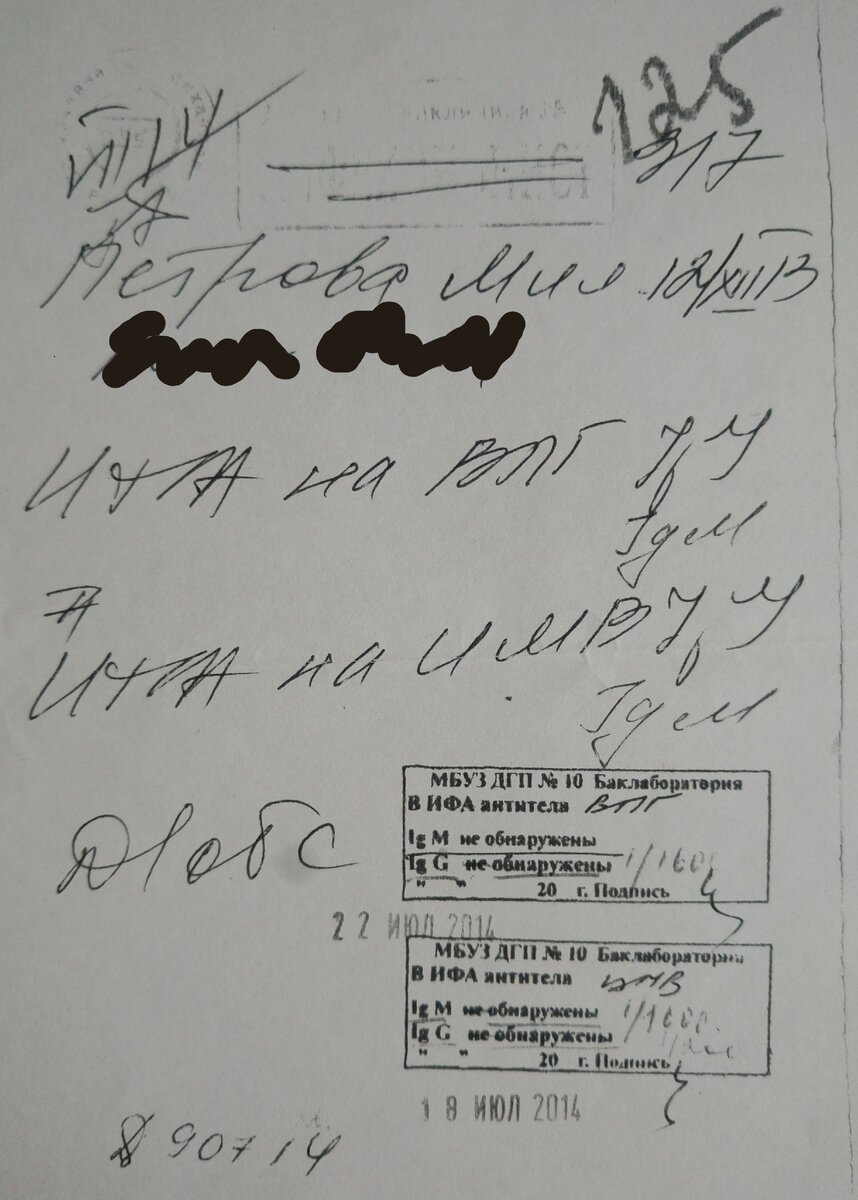 125
317
Петрова Мил 12/XII В
ИФА на ВПГ Jg У
Jg М
ИФА на ЦМВ Jg У
Jg М
Д/обс
МБУЗ ДГП № 10 Баклаборатория
В ИФА антитела ВПГ
Ig M не обнаружены
Ig G не обнаружены 1/1600
" " 20 г. Подпись
22 ИЮЛ 2014
МБУЗ ДГП № 10 Баклаборатория
В ИФА антитела ЦМВ
Ig M не обнаружены
Ig G не обнаружены
" " 20 г. Подпись
18 ИЮЛ 2014
90714